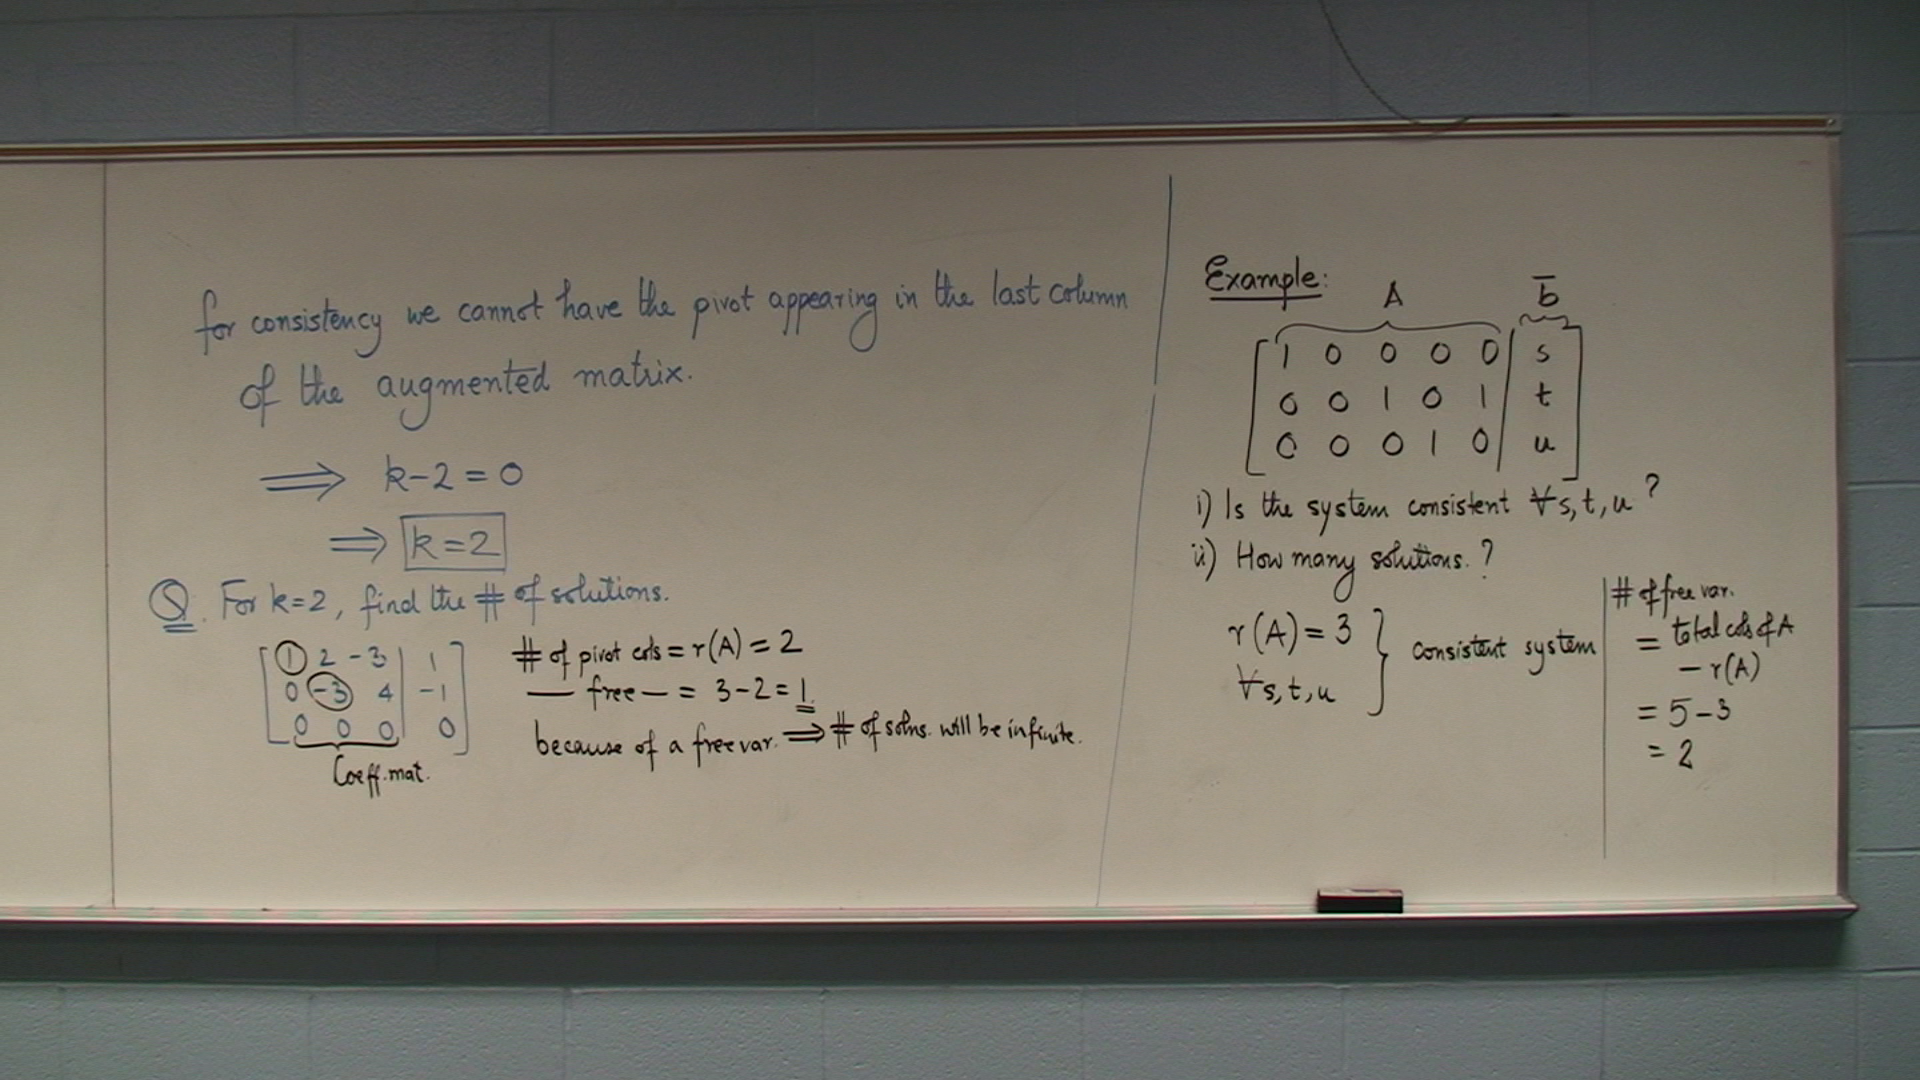 for consistency we cannot have the pivot appearing in the last column
of the augmented matrix.
⟹ k-2=0
⟹ k=2
Q. For k=2, find the # of solutions.
1 2 -3 | 1
0 -3 4 | -1
0 0 0 | 0
Coeff. mat.
# of pivot cols = r(A) = 2
— free — = 3-2 = 1
because of a free var. ⟹ # of solns. will be infinite.
Example:
A b̄
1 0 0 0 0 | s
0 0 1 0 1 | t
0 0 0 1 0 | u
i) Is the system consistent ∀ s, t, u ?
ii) How many solutions. ?
r(A) = 3
∀ s, t, u
} consistent system
# of free var.
= total cols of A
- r(A)
= 5-3
= 2